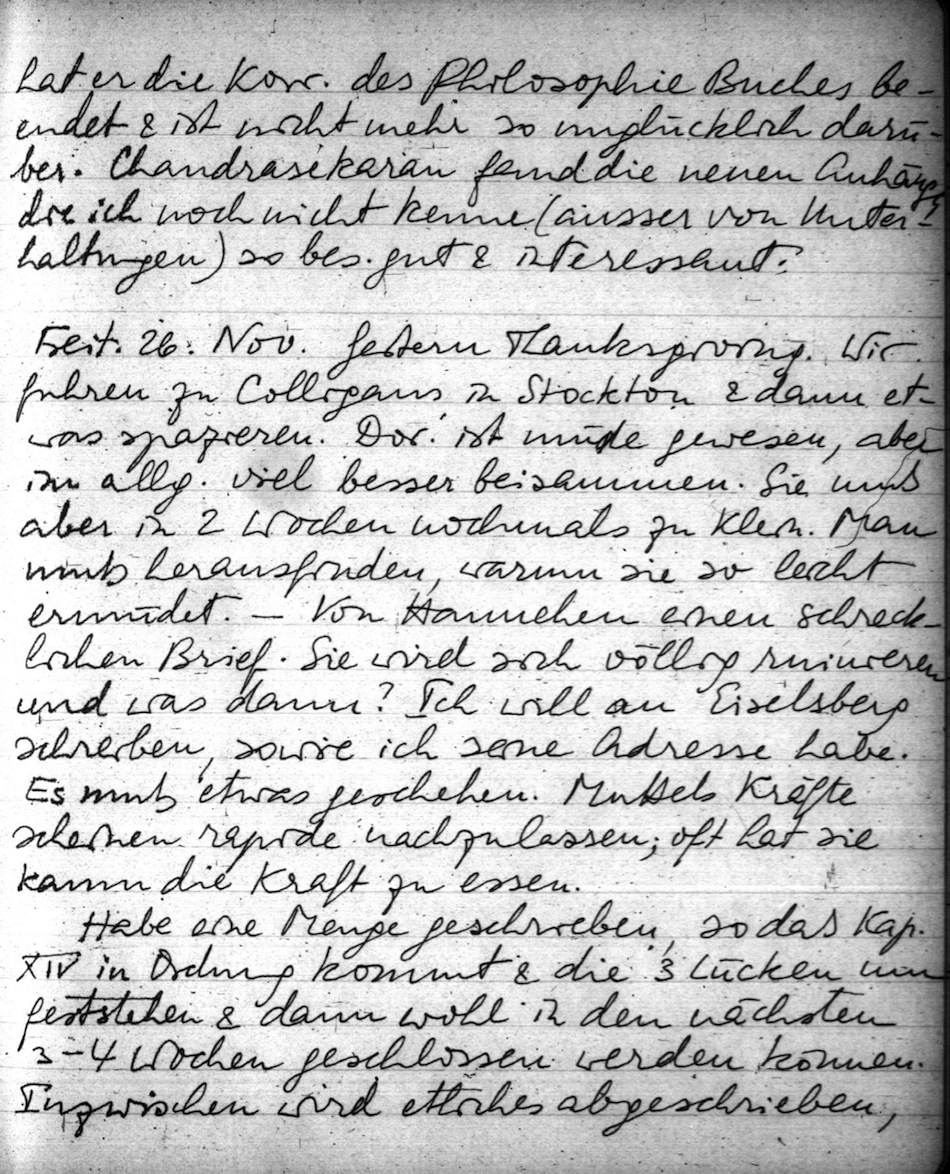 hat er die Korr. des Philosophie Buches be-
endet & ist nicht mehr so unglücklich darü-
ber. Chandrasekaran fand die neuen Anhänge,
die ich noch nicht kenne (ausser von Unter-
haltungen) so bes. gut & interessant.
Freit. 26. Nov. Gestern Thanksgiving. Wir
fuhren zu Colligans in Stockton & dann et-
was spazieren. Dor. ist müde gewesen, aber
im allg. viel besser beisammen. Sie muß
aber in 2 Wochen nochmals zu Klein. Man
muß herausfinden, warum sie so leicht
ermüdet. — Von Hannchen einen schreck-
lichen Brief. Sie wird sich völlig ruinieren
und was dann? Ich will an Eiselsberg
schreiben, sowie ich seine Adresse habe.
Es muß etwas geschehen. Muttels Kräfte
scheinen rapide nachzulassen; oft hat sie
kaum die Kraft zu essen.
Habe eine Menge geschrieben, so daß Kap.
XIV in Ordnung kommt & die 3 Lücken nun
feststehen & dann wohl in den nächsten
3-4 Wochen geschlossen werden können.
Inzwischen wird etliches abgeschrieben,